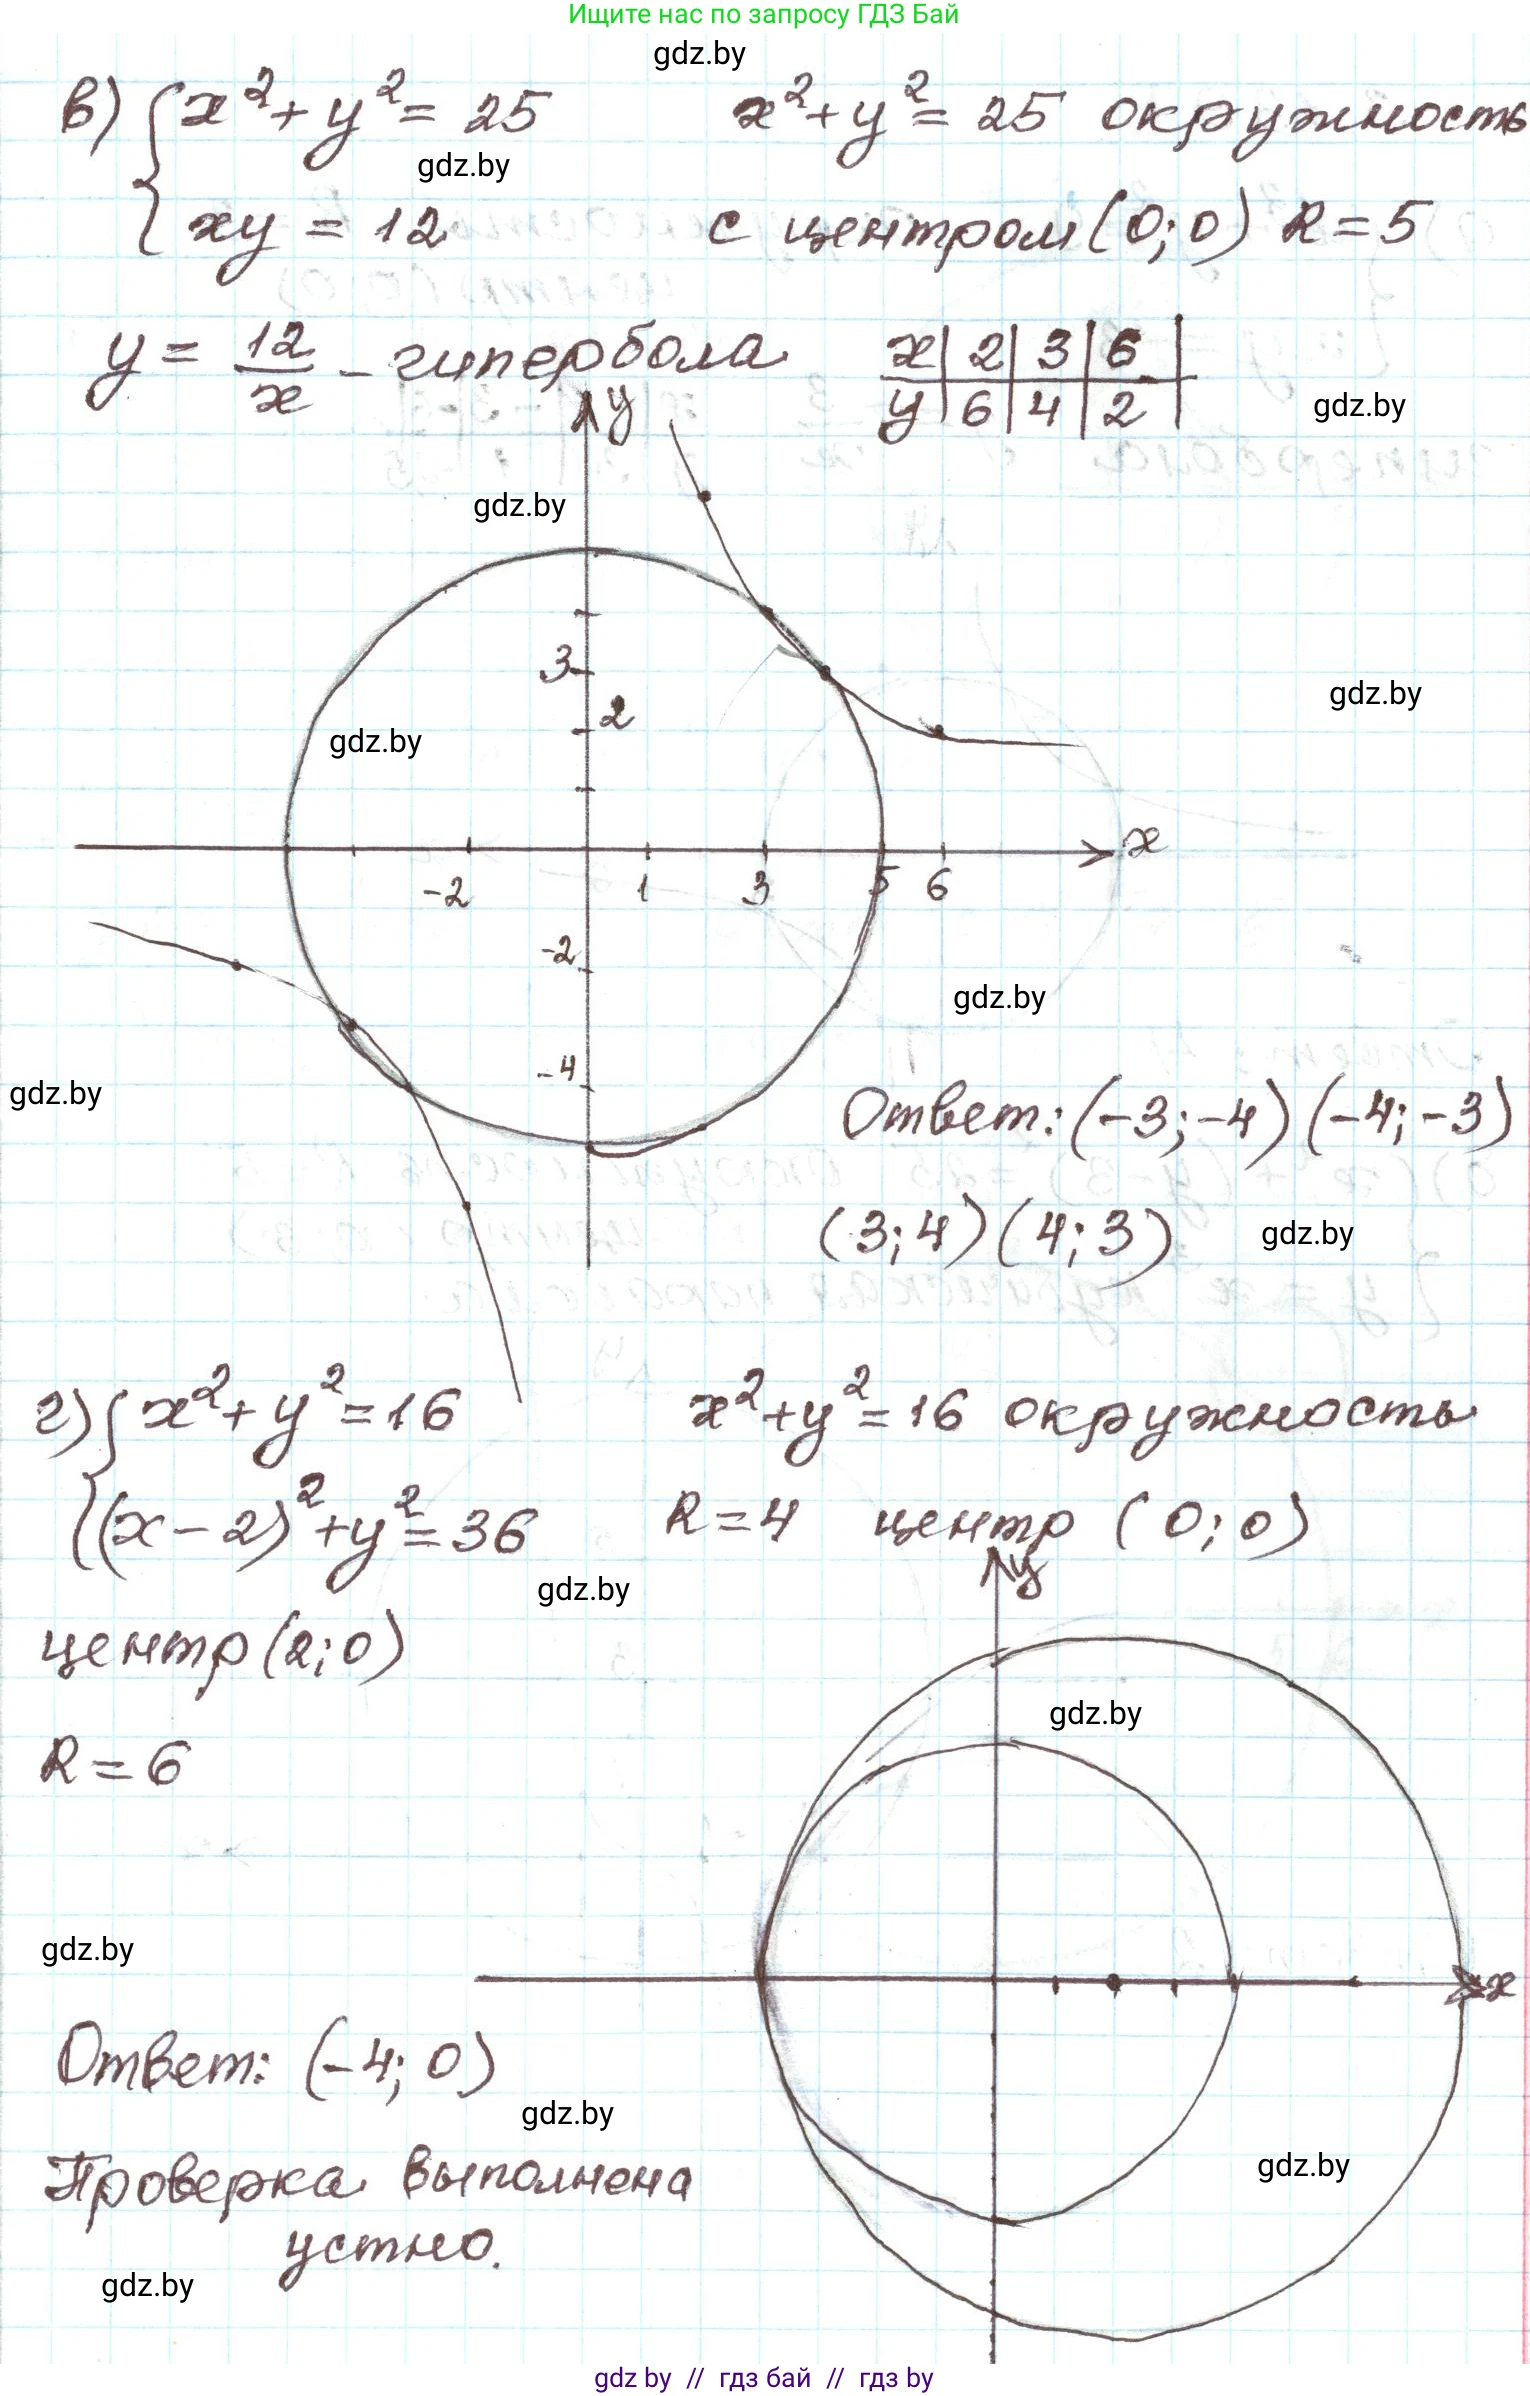 Ищите нас по запросу ГДЗ Бай
gdz.by
в) { x² + y² = 25    x² + y² = 25 окружность
gdz.by
xy = 12    с центром (0; 0) R = 5
y = 12/x - гипербола    x | 2 | 3 | 6
y | 6 | 4 | 2
gdz.by
y
gdz.by
3
2
gdz.by
gdz.by
x
-2 1 3 5 6
-2
gdz.by
-4
gdz.by
Ответ: (-3; -4) (-4; -3)
(3; 4) (4; 3)
gdz.by
г) { x² + y² = 16    x² + y² = 16 окружность
(x - 2)² + y² = 36    R = 4 центр (0; 0)
y
gdz.by
центр (2; 0)
gdz.by
R = 6
gdz.by
x
Ответ: (-4; 0)
gdz.by
Проверка выполнена
gdz.by
устно.
gdz.by
gdz by // гдз бай // гдз by